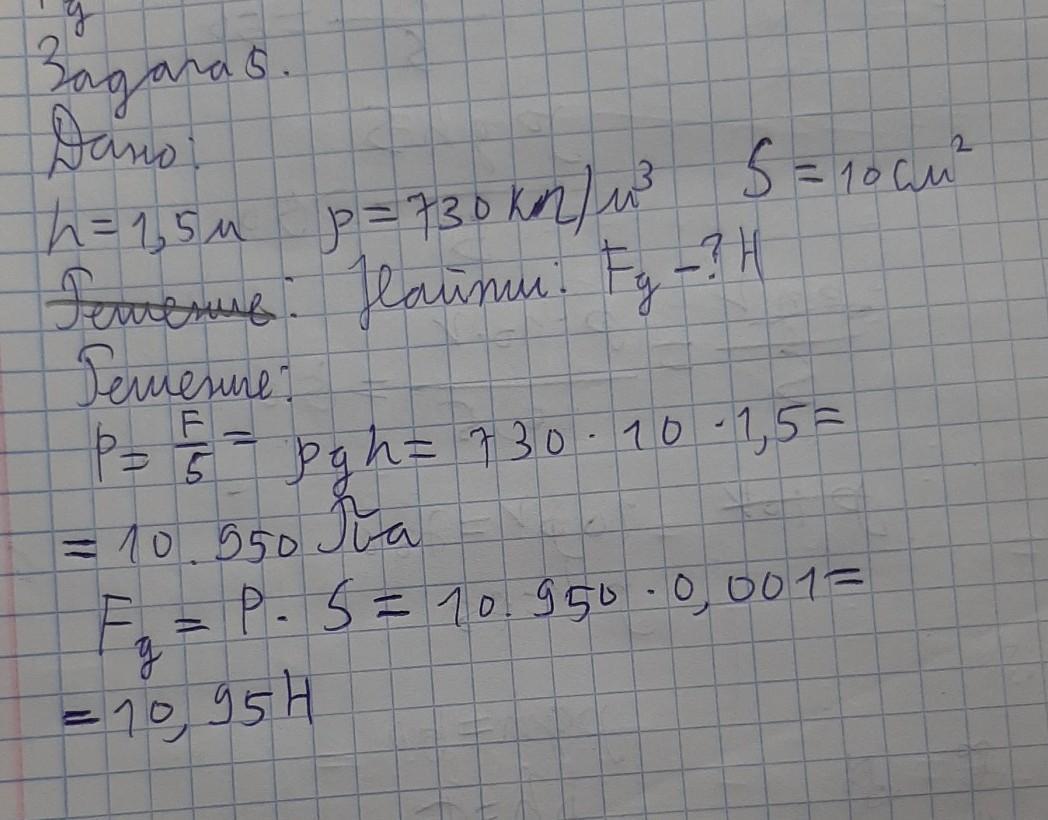 Задача 5.
Дано:
h = 1,5 м p = 730 кг/м³ S = 10 см²
Решение: Найти: Fg - ? H
Решение:
P = F/S = pgh = 730 · 10 · 1,5 =
= 10.950 Па
Fg = P · S = 10.950 · 0,001 =
= 10,95 H